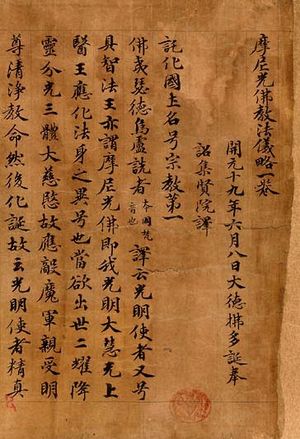 摩尼光佛教法儀略一卷
開元十九年六月八日大德拂多誕奉
詔集賢院譯
託化國主名号宗教第一
佛夷瑟德烏盧詵者 本國梵音也 譯云光明使者又号
具智法王亦謂摩尼光佛即我光明大慧无上
醫王應化法身之異号也當欲出世二耀降
靈分光三體大慈愍故應敵魔軍親受明
尊清淨教命然後化誕故云光明使者精真